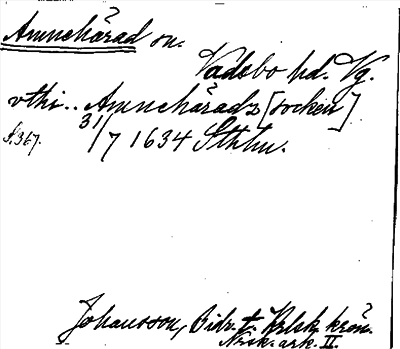 Amnehärad sn.
Vadsbo hd. Vg.
vthi.. Amnehäradz [socken]
S. 367. 31/7 1634 Sthlm.
Johansson, Bidr. t. Krlsk. krön.
Nrsk. ark. II.